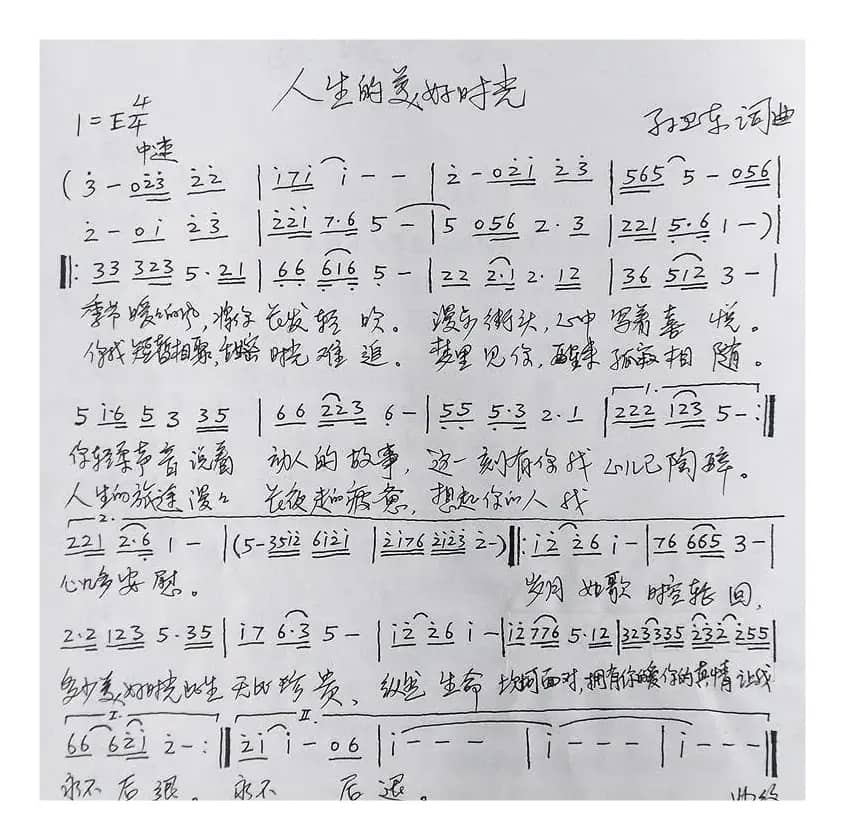 人生的美好时光
1=E 4/4
孙卫东 词曲
中速
( 3̇ - 02̇3̇ 2̇2̇ | 1̇71̇ 1̇ - - | 2̇ - 02̇1̇ 2̇3̇ | 565 5 - 056 |
2̇ - 01̇ 2̇3̇ | 2̇2̇1̇ 7·6 5 - | 5 056 2·3 | 221 5̣·6̣ 1 - ) |
‖: 33 323 5·21 | 6̣6̣ 6̣16̣ 5̣ - | 22 2·1 2·12 | 36 512 3 - |
季节暖暖的风,将你长发轻吹。漫步街头,心中写着喜悦。
你我短暂相聚,甜蜜时光难追。梦里见你,醒来孤寂相随。
5 1̇·6 5 3 35 | 66 223 6 - | 5̣5̣ 5̣·3 2·1 | 1. 222 123 5 - :‖
你轻柔声音说着 动人的故事,这一刻有你我心儿已陶醉。
人生的旅途漫漫 长夜走的疲惫,想起你的人我
2. 221 2·6̣ 1 - | (5 - 351̇2̇ 61̇2̇1̇ | 2̇1̇76 2̇1̇2̇3̇ 2̇ - ) ‖: 1̇2̇ 2̇6 1̇ - | 76 665 3 - |
心儿多安慰。 岁月如歌 时空轮回,
2·2 123 5·35 | 1̇7 6·3 5 - | 1̇2̇ 2̇6 1̇ - | 1̇2̇776 5·12 | 323335 2̇32̇ 2̇55 |
多少美好时光此生无比珍贵、纵然生命坎坷面对,拥有你暖你的真情让我
I. 66 62̇1̇ 2̇ - :‖ II. 2̇1̇ 1̇ - 06 | 1̇ - - - | 1̇ - - - | 1̇ - - - ‖
永不后退。永不 后退。